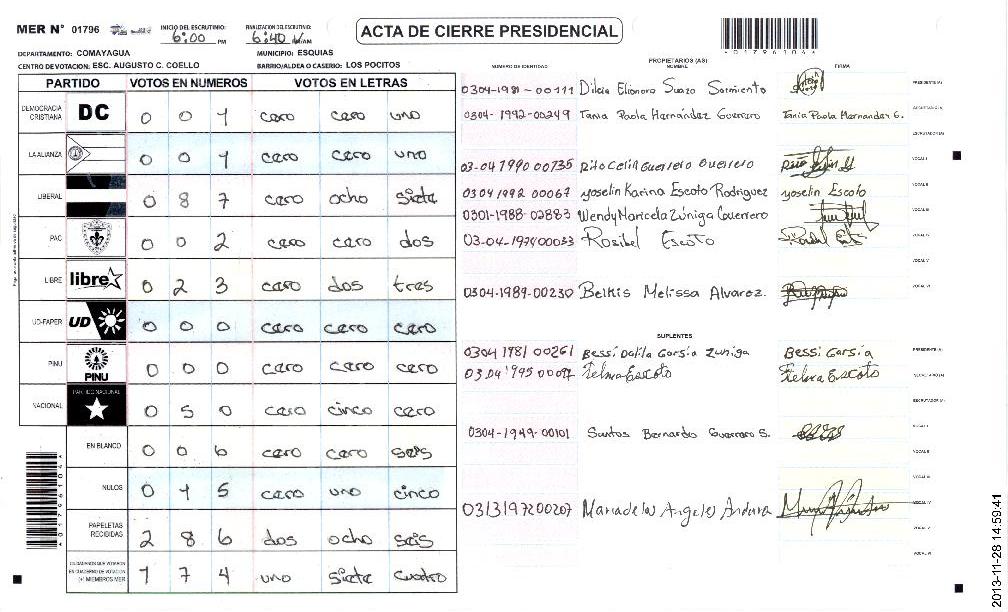 MER N° 01796 INICIO DEL ESCRUTINIO: 6:00 PM FINALIZACION DEL ESCRUTINIO: 6:40 /AM
ACTA DE CIERRE PRESIDENCIAL
DEPARTAMENTO: COMAYAGUA MUNICIPIO: ESQUIAS
CENTRO DE VOTACION: ESC. AUGUSTO C. COELLO BARRIO/ALDEA O CASERIO: LOS POCITOS
PARTIDO VOTOS EN NUMEROS VOTOS EN LETRAS
DEMOCRACIA CRISTIANA DC 0 0 1 cero cero uno
LA ALIANZA 0 0 1 cero cero uno
LIBERAL 0 8 7 cero ocho siete
PAC 0 0 2 cero cero dos
LIBRE libre 0 2 3 cero dos tres
UD-FAPER UD 0 0 0 cero cero cero
PINU PINU 0 0 0 cero cero cero
NACIONAL PARTIDO NACIONAL 0 5 0 cero cinco cero
EN BLANCO 0 0 6 cero cero seis
NULOS 0 1 5 cero uno cinco
PAPELETAS RECIBIDAS 2 8 6 dos ocho seis
CIUDADANOS QUE VOTARON EN CUADERNO DE VOTACION (+) MIEMBROS MER 1 7 4 uno siete cuatro
PROPIETARIOS (AS)
NUMERO DE IDENTIDAD NOMBRE FIRMA
0304-1981-00111 Dilcia Elionora Suazo Sarmiento PRESIDENTE(A)
0304-1992-00249 Tania Paola Hernández Guerrero Tania Paola Hernandez G. SECRETARIO(A)
ESCRUTADOR(A)
03-04 1990 00735 Rito Celin Guerrero Guerrero VOCAL I
0304 1992 00067 yoselin Karina Escoto Rodriguez yoselin Escoto VOCAL II
0301-1988-02883 Wendy Maricela Zúniga Guerrero VOCAL III
03-04-1974 00033 Rosibel Escoto
VOCAL V
0304-1989-00230 Belkis Melissa Alvarez. VOCAL VI
SUPLENTES
0304 1981 00261 Bessi Dalila Garsía Zuniga Bessi Garsía PRESIDENTE(A)
Telma Escoto Telma Escoto SECRETARIO(A)
ESCRUTADOR(A)
0304-1949-00101 Santos Bernardo Guerrero S. VOCAL I
VOCAL II
VOCAL III
0313197200207 Maria de los Angeles Andara VOCAL IV
VOCAL V
VOCAL VI
2013-11-28 14:59:41